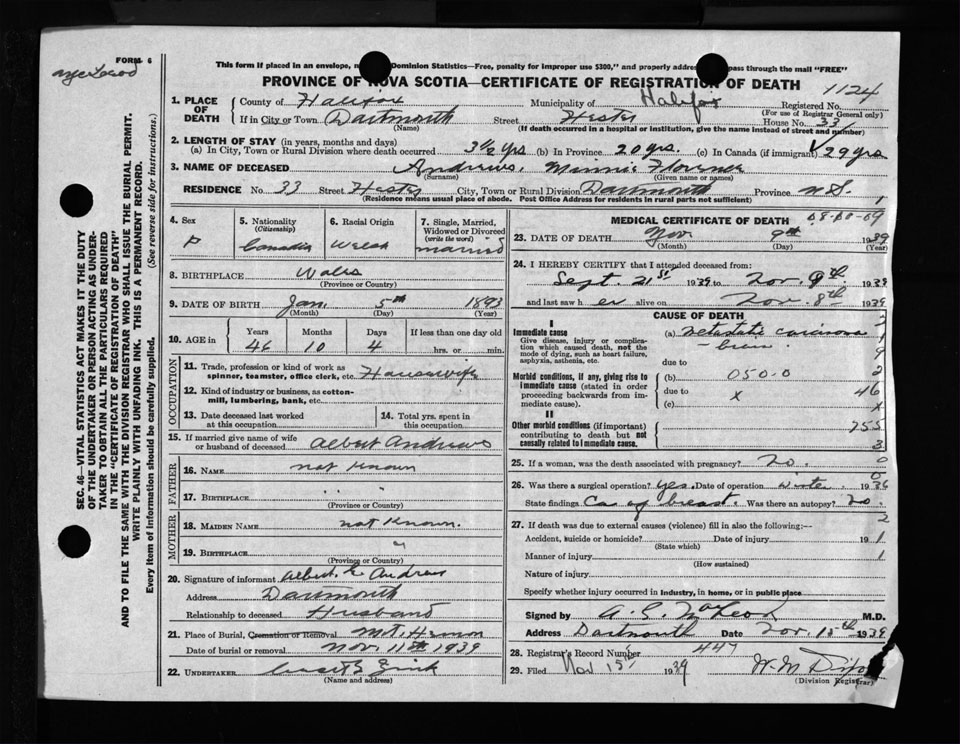 FORM 6
This form if placed in an envelope, Dominion Statistics—Free, penalty for improper use $300," and properly pass through the mail "FREE"
PROVINCE OF NOVA SCOTIA—CERTIFICATE OF REGISTRATION OF DEATH
1124
1. PLACE OF DEATH
County of Halifax Municipality of Halifax Registered No.
(For use of Registrar General only)
If in City or Town Dartmouth Street Hester House No. 33
(Name) (If death occurred in a hospital or institution, give the name instead of street and number)
2. LENGTH OF STAY (in years, months and days)
(a) In City, Town or Rural Division where death occurred 3½ yrs (b) In Province 20 yrs. (c) In Canada (if immigrant) 29 yrs
3. NAME OF DECEASED Andrews, Minnie Florence
(Surname) (Given name or names)
RESIDENCE No. 33 Street Hester City, Town or Rural Division Dartmouth Province N.S.
(Residence means usual place of abode. Post Office Address for residents in rural parts not sufficient)
SEC. 46—VITAL STATISTICS ACT MAKES IT THE DUTY
OF THE UNDERTAKER OR PERSON ACTING AS UNDER-
TAKER TO OBTAIN ALL THE PARTICULARS REQUIRED
IN THE "CERTIFICATE OF REGISTRATION OF DEATH"
AND TO FILE THE SAME WITH THE DIVISION REGISTRAR WHO SHALL ISSUE THE BURIAL PERMIT.
WRITE PLAINLY WITH UNFADING INK. THIS IS A PERMANENT RECORD.
Every item of information should be carefully supplied. (See reverse side for instructions.)
4. Sex
5. Nationality (Citizenship) Canadia
6. Racial Origin Welsh
7. Single, Married, Widowed or Divorced (write the word) married
8. BIRTHPLACE Wales
(Province or Country)
9. DATE OF BIRTH Jan. 5th 1893
(Month) (Day) (Year)
10. AGE in Years Months Days If less than one day old
46 10 4 hrs. or min.
OCCUPATION
11. Trade, profession or kind of work as spinner, teamster, office clerk, etc. Housewife
12. Kind of industry or business, as cotton-mill, lumbering, bank, etc.
13. Date deceased last worked at this occupation
14. Total yrs. spent in this occupation
15. If married give name of wife or husband of deceased Albert Andrews
FATHER
16. NAME not known
17. BIRTHPLACE " "
(Province or Country)
MOTHER
18. MAIDEN NAME not known.
19. BIRTHPLACE "
(Province or Country)
20. Signature of informant Albert E Andrews
Address Dartmouth
Relationship to deceased Husband
21. Place of Burial, Cremation or Removal Mt. Hermon
Date of burial or removal Nov. 11th 1939
22. UNDERTAKER Zink
(Name and address)
MEDICAL CERTIFICATE OF DEATH
23. DATE OF DEATH Nov. 9th 1939
(Month) (Day) (Year)
24. I HEREBY CERTIFY that I attended deceased from:
Sept. 21st 1939 to Nov. 9th 1939
and last saw her alive on Nov. 8th 1939
CAUSE OF DEATH
I
Immediate cause
Give disease, injury or complication which caused death, not the mode of dying, such as heart failure, asphyxia, asthenia, etc.
(a) metastatic carcinoma
- brain.
due to
Morbid conditions, if any, giving rise to immediate cause (stated in order proceeding backwards from immediate cause).
(b) 050.0
due to x 46
(c) x
II
Other morbid conditions (if important) contributing to death but not causally related to immediate cause.
255
3
25. If a woman, was the death associated with pregnancy? No. 0
26. Was there a surgical operation? yes. Date of operation winter 1936
State findings Ca of breast. Was there an autopsy? no.
27. If death was due to external causes (violence) fill in also the following:— 2
Accident, suicide or homicide? Date of injury 19 1
(State which)
Manner of injury 1
(How sustained)
Nature of injury
Specify whether injury occurred in industry, in home, or in public place
Signed by A. G. McLeod M.D.
Address Dartmouth Date Nov. 15th 1939
28. Registrar's Record Number 447
29. Filed Nov 15th 1939
(Division Registrar)